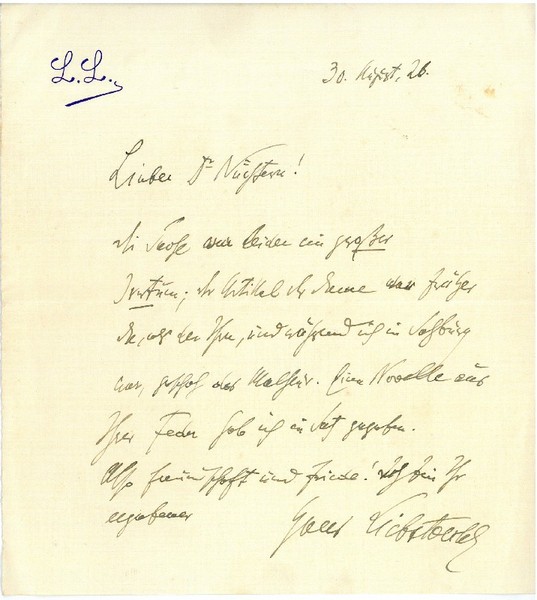 L. L.
30. August, 26.
Lieber Dr Nüchtern!
die Sache war leider ein großer
Irrtum; der Artikel der Dame war früher
da, als der Ihre, und während ich in Salzburg
war, geschah das Malheur. Eine Novelle aus
Ihrer Feder hab ich in Satz gegeben.
Also Freundschaft und Friede! Ich bin Ihr
ergebener
Hans Liebstoeckl